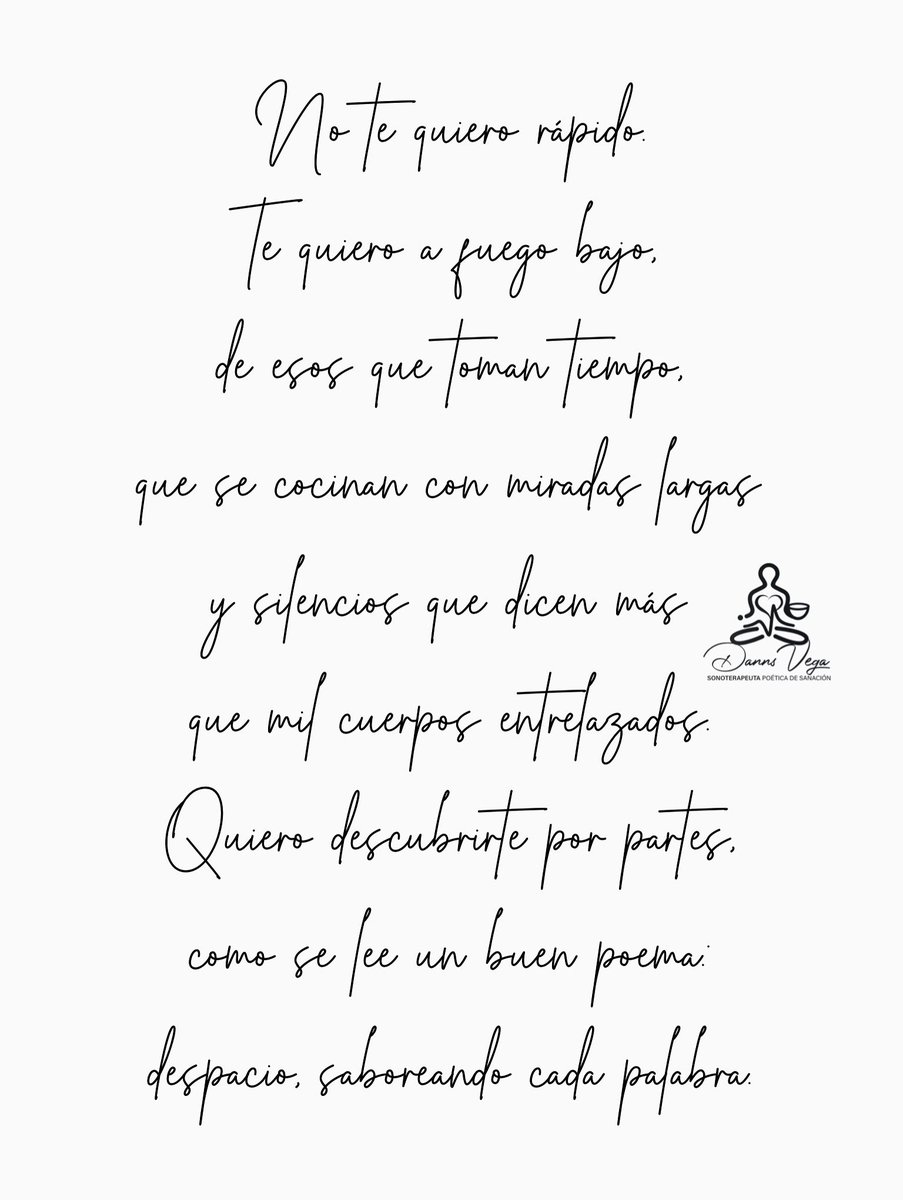 No te quiero rápido.
Te quiero a fuego bajo,
de esos que toman tiempo,
que se cocinan con miradas largas
y silencios que dicen más
Danns Vega
SONOTERAPEUTA POÉTICA DE SANACIÓN
que mil cuerpos entrelazados.
Quiero descubrirte por partes,
como se lee un buen poema:
despacio, saboreando cada palabra.